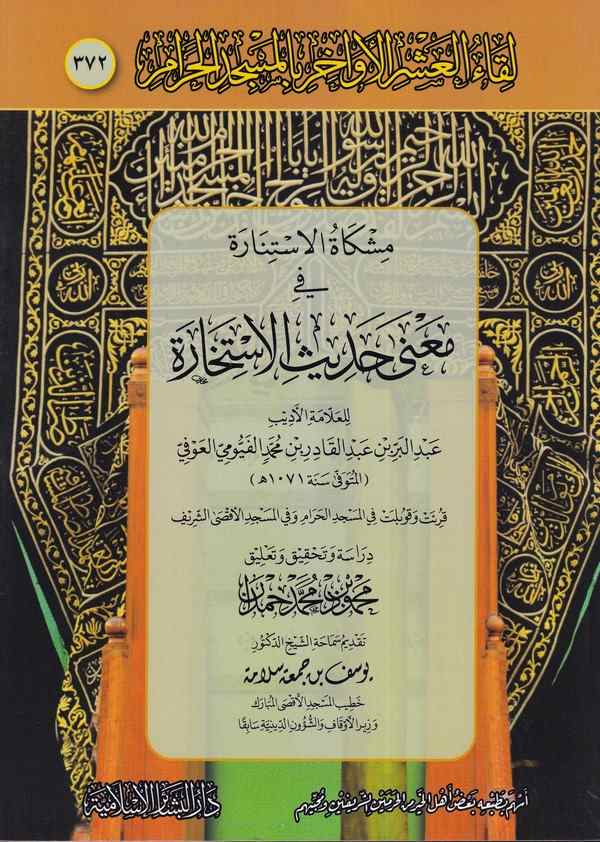 لِقَاءُ العَشْرِ الأَوَاخِرِ بِالمَسْجِدِ الحَرَامِ
٣٧٢
مِشْكَاةُ الاسْتِنَارَة
فِي
مَعْنَى حَدِيثِ الاسْتِخَارَة
لِلعَلَّامَةِ الأَدِيبِ
عَبْدِ البَرِّ بْنِ عَبْدِ القَادِرِ بْنِ مُحَمَّدٍ الفَيُّومِيِّ العَوْفِيِّ
(المُتَوَفَّى سَنَة ١٠٧١ هـ)
قُرِئَتْ وَقُوبِلَتْ فِي المَسْجِدِ الحَرَامِ وَفِي المَسْجِدِ الأَقْصَى الشَّرِيفِ
دِرَاسَة وَتَحْقِيق وَتَعْلِيق
مَحْمُود بْن مُحَمَّد حَمْدَان
تَقْدِيمُ سَمَاحَةِ الشَّيْخِ الدُّكْتُورِ
يوسف بن جمعة سلامة
خَطِيبِ المَسْجِدِ الأَقْصَى المُبَارَك
وَزِيرِ الأَوْقَافِ وَالشُّؤُونِ الدِّينِيَّةِ سَابِقًا
أَسْهَمَ بِطَبْعِهِ بَعْضُ أَهْلِ الخَيْرِ مِنَ الحَرَمَيْنِ الشَّرِيفَيْنِ وَمُحِبِّيهِمْ
دَارُ البَشَائِرِ الإِسْلَامِيَّة